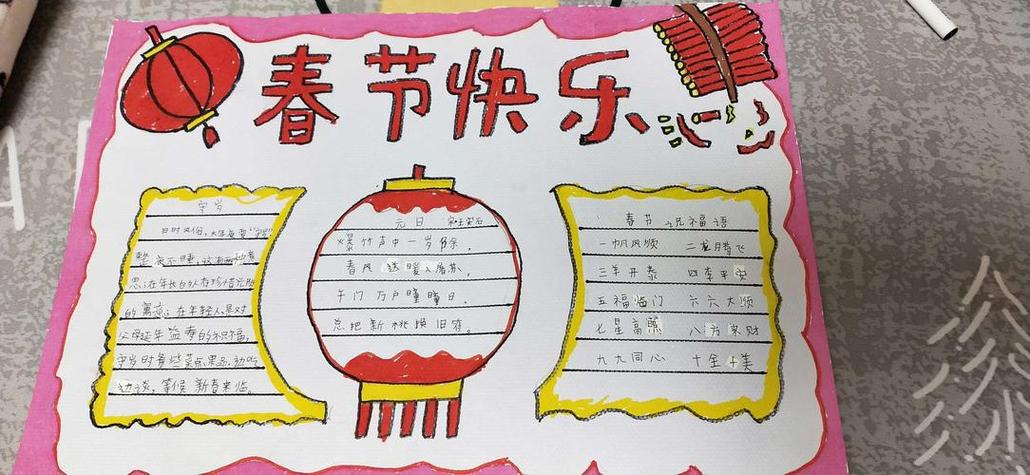 春节快乐
守岁
旧时风俗，大年夜要“守岁”
整夜不睡，这有两种意
思：在年长的人有珍惜光阴
的寓意；在年轻人，是对
父母延年益寿的祝福，
守岁时备些菜点果品，边吃
边谈，等候新春来临。
元日 宋王安石
爆竹声中一岁除，
春风送暖入屠苏，
千门万户瞳瞳日，
总把新桃换旧符。
春节祝福语
一帆风顺 二龙腾飞
三羊开泰 四季平安
五福临门 六六大顺
七星高照 八方来财
九九同心 十全十美